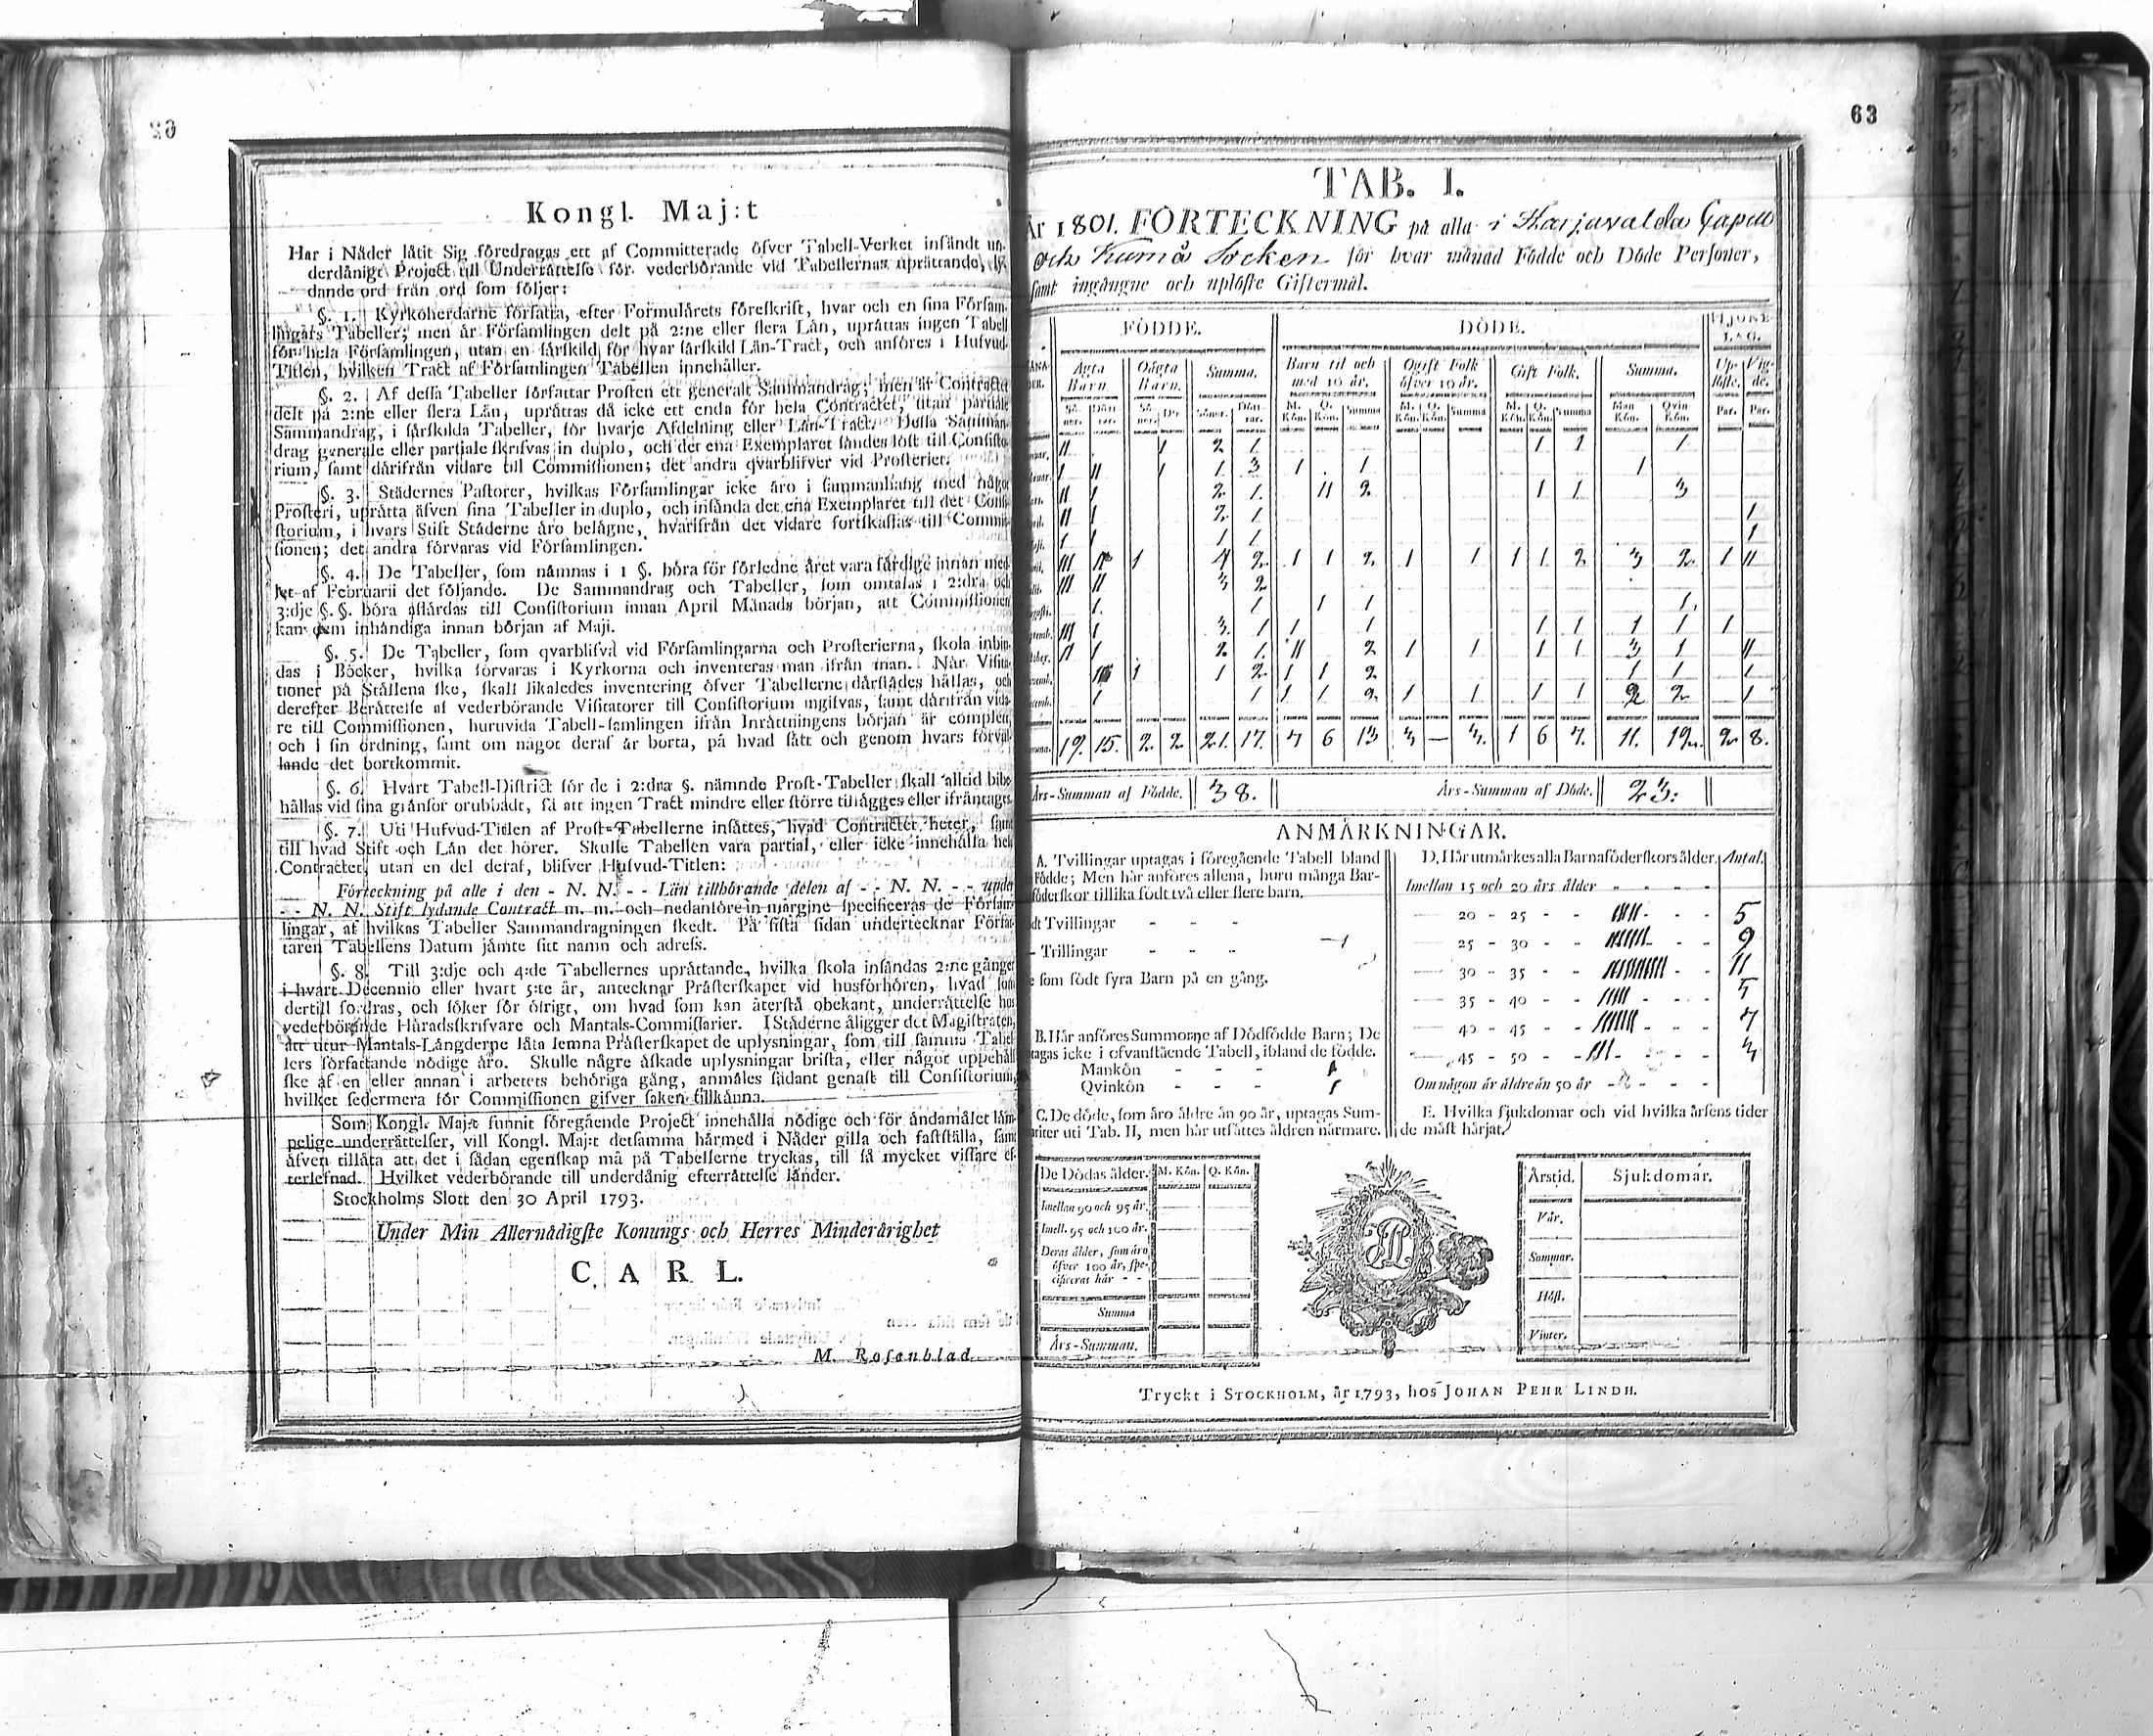 63
Kongl. Maj:t
Har i Nåder låtit Sig föredragas ett af Committerade öfver Tabell-Verket insändt un-
derdånigt Project till Underrättelse för vederbörande vid Tabellernas uprättande, ly-
dande ord från ord som följer:
§. 1. Kyrkoherdarne författa, efter Formulårets föreskrift, hvar och en sina Försam-
lingars Tabeller; men är Församlingen delt på 2:ne eller flera Län, uprättas ingen Tabell
för hela Församlingen, utan en särskild för hvar särskild Län-Tract, och anföres i Hufvud-
Titlen, hvilken Tract af Församlingen Tabellen innehåller.
§. 2. Af dessa Tabeller författar Prosten ett generalt Sammandrag; men är Contractet
delt på 2:ne eller flera Län, uprättas då icke ett enda för hela Contractet, utan partiale
Sammandrag, i särskilda Tabeller, för hvarje Afdelning eller Län-Tract. Dessa Samman-
drag generale eller partiale skrifvas in duplo, och det ena Exemplaret sändes löst till Consisto-
rium, samt därifrån vidare till Commissionen; det andra qvarblifver vid Prosterier.
§. 3. Städernes Pastorer, hvilkas Församlingar icke äro i sammanhang med något
Prosteri, uprätta äfven sina Tabeller in duplo, och insända det ena Exemplaret till det Consi-
storium, i hvars Stift Städerne äro belägne, hvarifrån det vidare fortskaffas till Commis-
sionen; det andra förvaras vid Församlingen.
§. 4. De Tabeller, som nämnas i 1 §. böra för förledne året vara färdige innan med-
let af Februarii det följande. De Sammandrag och Tabeller, som omtalas i 2:dra och
3:dje §. §. böra affärdas till Consistorium innan April Månads början, att Commissionen
kan dem inhändiga innan början af Maji.
§. 5. De Tabeller, som qvarblifva vid Församlingarna och Prosterierna, skola inbin-
das i Böcker, hvilka förvaras i Kyrkorna och inventeras man ifrån man. När Visita-
tioner på Ställena ske, skall likaledes inventering öfver Tabellerne därstädes hållas, och
derefter Berättelse af vederbörande Visitatorer till Consistorium ingifvas, samt därifrån vida-
re till Commissionen, huruvida Tabell-samlingen ifrån Inrättningens början är complett
och i sin ordning, samt om något deraf är borta, på hvad sätt och genom hvars förvål-
lande det bortkommit.
§. 6. Hvart Tabell-District för de i 2:dra §. nämnde Prost-Tabeller skall alltid bibe-
hållas vid sina gränsor orubbadt, så att ingen Tract mindre eller större tillägges eller ifråntages.
§. 7. Uti Hufvud-Titlen af Prost-Tabellerne insättes, hvad Contractet heter, samt
till hvad Stift och Län det hörer. Skulle Tabellen vara partial, eller icke innehålla hela
Contractet, utan en del deraf, blifver Hufvud-Titlen:
Förteckning på alle i den - N. N. - - Län tillhörande delen af - - N. N. - - under
- - N. N. Stift lydande Contract m. m. och nedanföre in margine specificeras de Försam-
lingar, af hvilkas Tabeller Sammandragningen skedt. På sista sidan undertecknar Förfat-
taren Tabellens Datum jämte sitt namn och adress.
§. 8. Till 3:dje och 4:de Tabellernes uprättande, hvilka skola insändas 2:ne gånger
i hvart Decennio eller hvart 5:te år, antecknar Prästerskapet vid husförhören, hvad som
dertill fordras, och söker för öfrigt, om hvad som kan återstå obekant, underrättelse hos
vederbörande Häradsskrifvare och Mantals-Commissarier. I Städerne åligger det Magistraten,
att utur Mantals-Längderne låta lemna Prästerskapet de uplysningar, som till samma Tabel-
lers författande nödige äro. Skulle någre äskade uplysningar brista, eller något uppehåll
ske af en eller annan i arbetets behöriga gång, anmäles sådant genast till Consistorium,
hvilket sedermera för Commissionen gifver saken tillkänna.
Som Kongl. Maj:t funnit föregående Project innehålla nödige och för ändamålet läm-
pelige underrättelser, vill Kongl. Maj:t detsamma härmed i Nåder gilla och fastställa, samt
äfven tillåta att det i sådan egenskap må på Tabellerne tryckas, till så mycket vissare ef-
terlefnad. Hvilket vederbörande till underdånig efterrättelse länder.
Stockholms Slott den 30 April 1793.
Under Min Allernådigste Konungs och Herres Minderårighet
C A R L.
M. Rosenblad.
TAB. I.
År 1801. FÖRTECKNING på alla i Harjavalda Capell
och Kumå Socken för hvar månad Födde och Döde Personer,
samt ingångne och uplöste Giftermål.
FÖDDE. DÖDE. HJONE-LAG.
Ägta Barn. Oägta Barn. Summa. Barn til och med 10 år. Ogift Folk öfver 10 år. Gift Folk. Summa. Up-löste. Vig-de.
Sö-ner. Dött-rar. Sö-ner. D:r Söner. Dött-rar. M. Kön. Q. Kön. Summa M. Kön. Q. Kön. Summa M. Kön. Q. Kön. Summa Man Kön. Qvin Kön. Par. Par.
II 1 2 1 1 1 1
1 II 1 1 3 1 1 1
II 1 2 1 II 2 1 1 3
II 1 2 1 1
1 1 1 1 1
III 1 4 2 1 1 2 1 1 1 1 2 3 2 1 II
III II 3 2
1 1 1 1 1
III 1 3 1 1 1 1 1 1 1 1
II 1 2 1 II 2 1 1 1 1 3 1 II
1 1 2 1 1 2 1 1 1
1 1 1 1 2 1 1 1 1 2 2 1
19. 15. 2 2 21. 17. 7 6 13 3 — 3. 1 6 7. 11. 12. 2 8.
Års-Summan af Födde. 38. Års-Summan af Döde. 23:
ANMÄRKNINGAR.
A. Tvillingar uptagas i föregående Tabell bland
Födde; Men här anföres allena, huru många Bar-
nföderskor tillika födt två eller flere barn.
dt Tvillingar - - -
- Trillingar - - - 1
e som födt fyra Barn på en gång.
B. Här anföres Summorne af Dödfödde Barn; De
tagas icke i ofvanstående Tabell, ibland de födde.
Mankön - - - 1
Qvinkön - - - 1
C. De döde, som äro äldre än 90 år, uptagas Sum-
miter uti Tab. II, men här utsättes åldren närmare.
De Dödas ålder. M. Kön. Q. Kön.
Imellan 90 och 95 år.
Imell. 95 och 100 år.
Deras ålder, som äro
öfver 100 år, spe-
cificeras här - -
Summa
Års-Summan.
D. Här utmärkes alla Barnaföderskors ålder. Antal.
Imellan 15 och 20 års ålder
20 - 25 - - IIIII - - 5
25 - 30 - - IIIIIIIII - - 9
30 - 35 - - IIIIIIIIIII - - 11
35 - 40 - - IIIII - - 5
40 - 45 - - IIIIIII - - 7
45 - 50 - - III - - 3
Om någon är äldre än 50 år - - - -
E. Hvilka sjukdomar och vid hvilka årsens tider
de mäst härjat.
Årstid. Sjukdomar.
Vår.
Sommar.
Höst.
Vinter.
Tryckt i STOCKHOLM, år 1793, hos JOHAN PEHR LINDH.